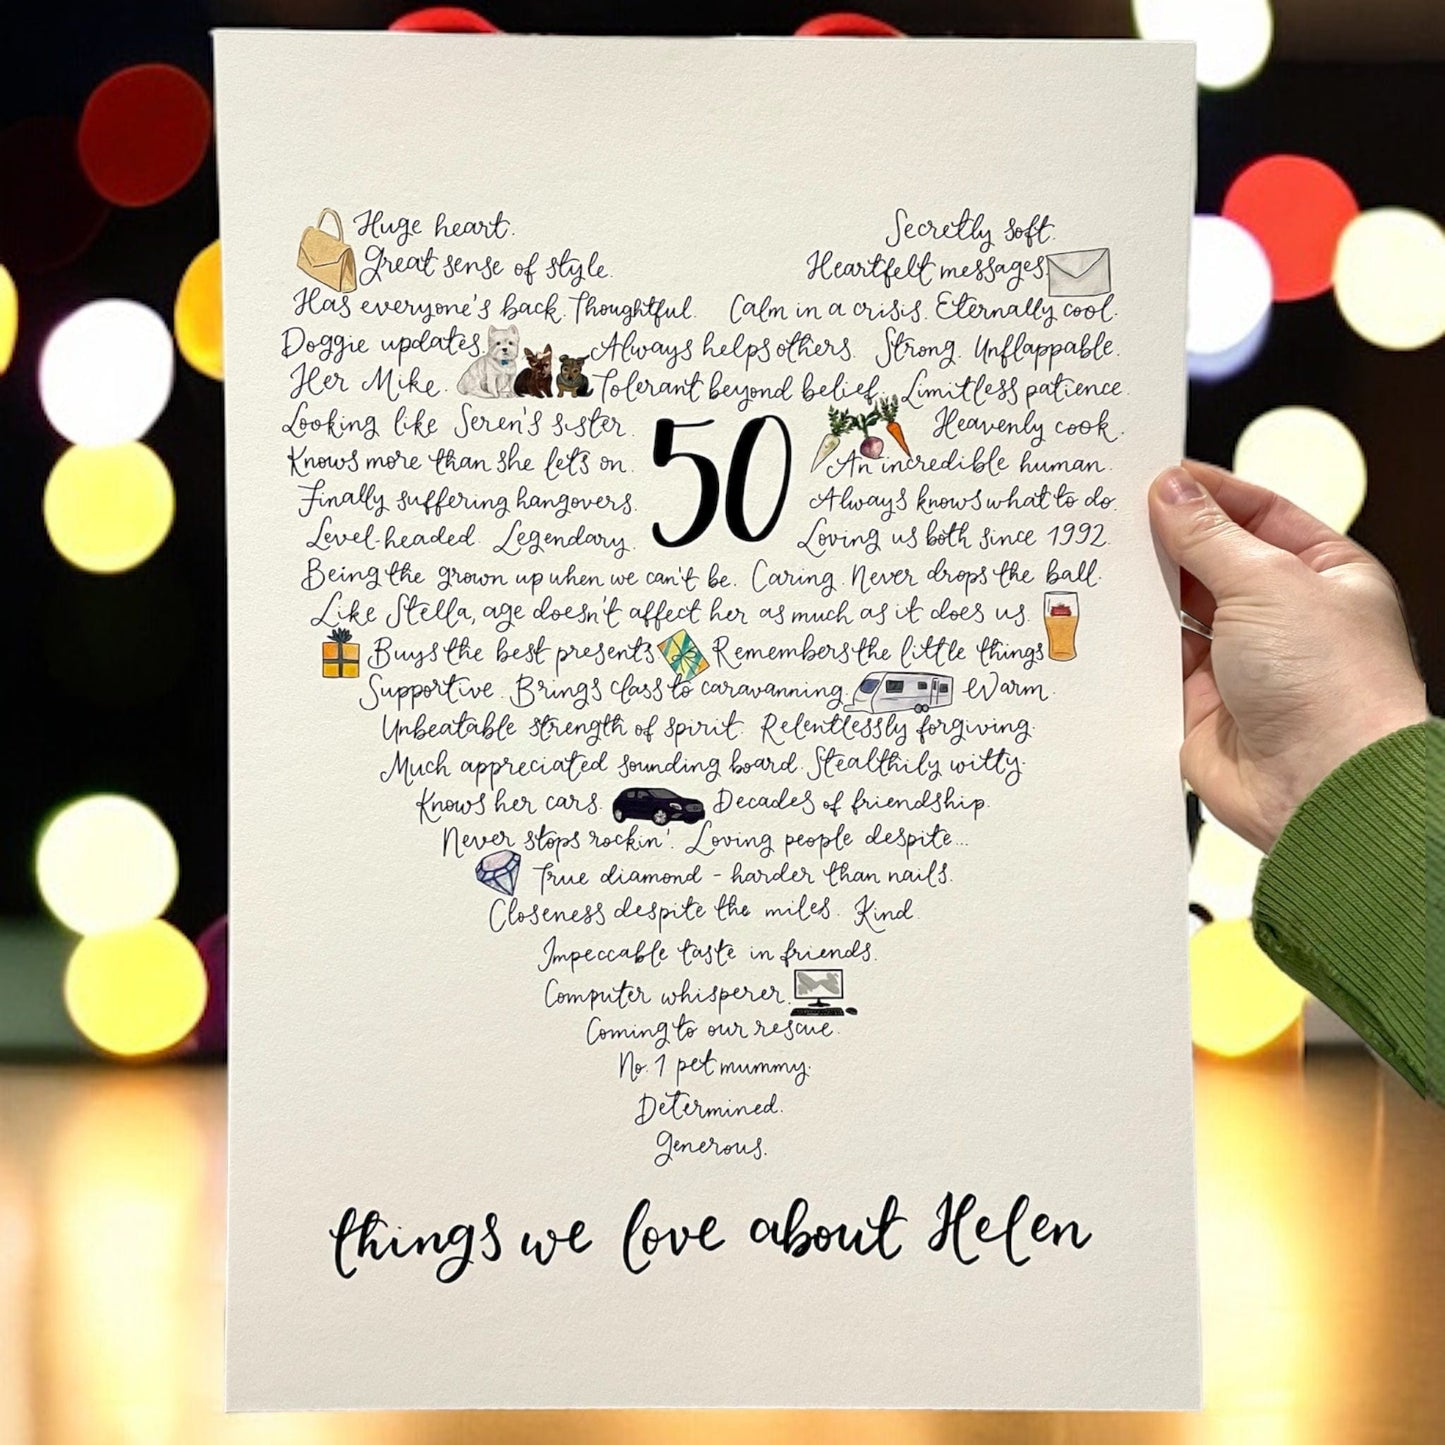 Huge heart. Secretly soft.
Great sense of style. Heartfelt messages
Has everyone's back. Thoughtful. Calm in a crisis. Eternally cool.
Doggie updates Always helps others. Strong. Unflappable.
Her Mike. Tolerant beyond belief. Limitless patience.
Looking like Seren's sister. Heavenly cook.
Knows more than she lets on. An incredible human.
50
Finally suffering hangovers. Always knows what to do.
Level-headed. Legendary. Loving us both since 1992.
Being the grown up when we can't be. Caring. Never drops the ball.
Like Stella, age doesn't affect her as much as it does us.
Buys the best presents Remembers the little things
Supportive. Brings class to caravanning. Warm.
Unbeatable strength of spirit. Relentlessly forgiving.
Much appreciated sounding board. Stealthily witty.
Knows her cars. Decades of friendship.
Never stops rockin'. Loving people despite...
True diamond - harder than nails.
Closeness despite the miles. Kind.
Impeccable taste in friends.
Computer whisperer.
Coming to our rescue.
No. 1 pet mummy.
Determined.
Generous.
things we love about Helen